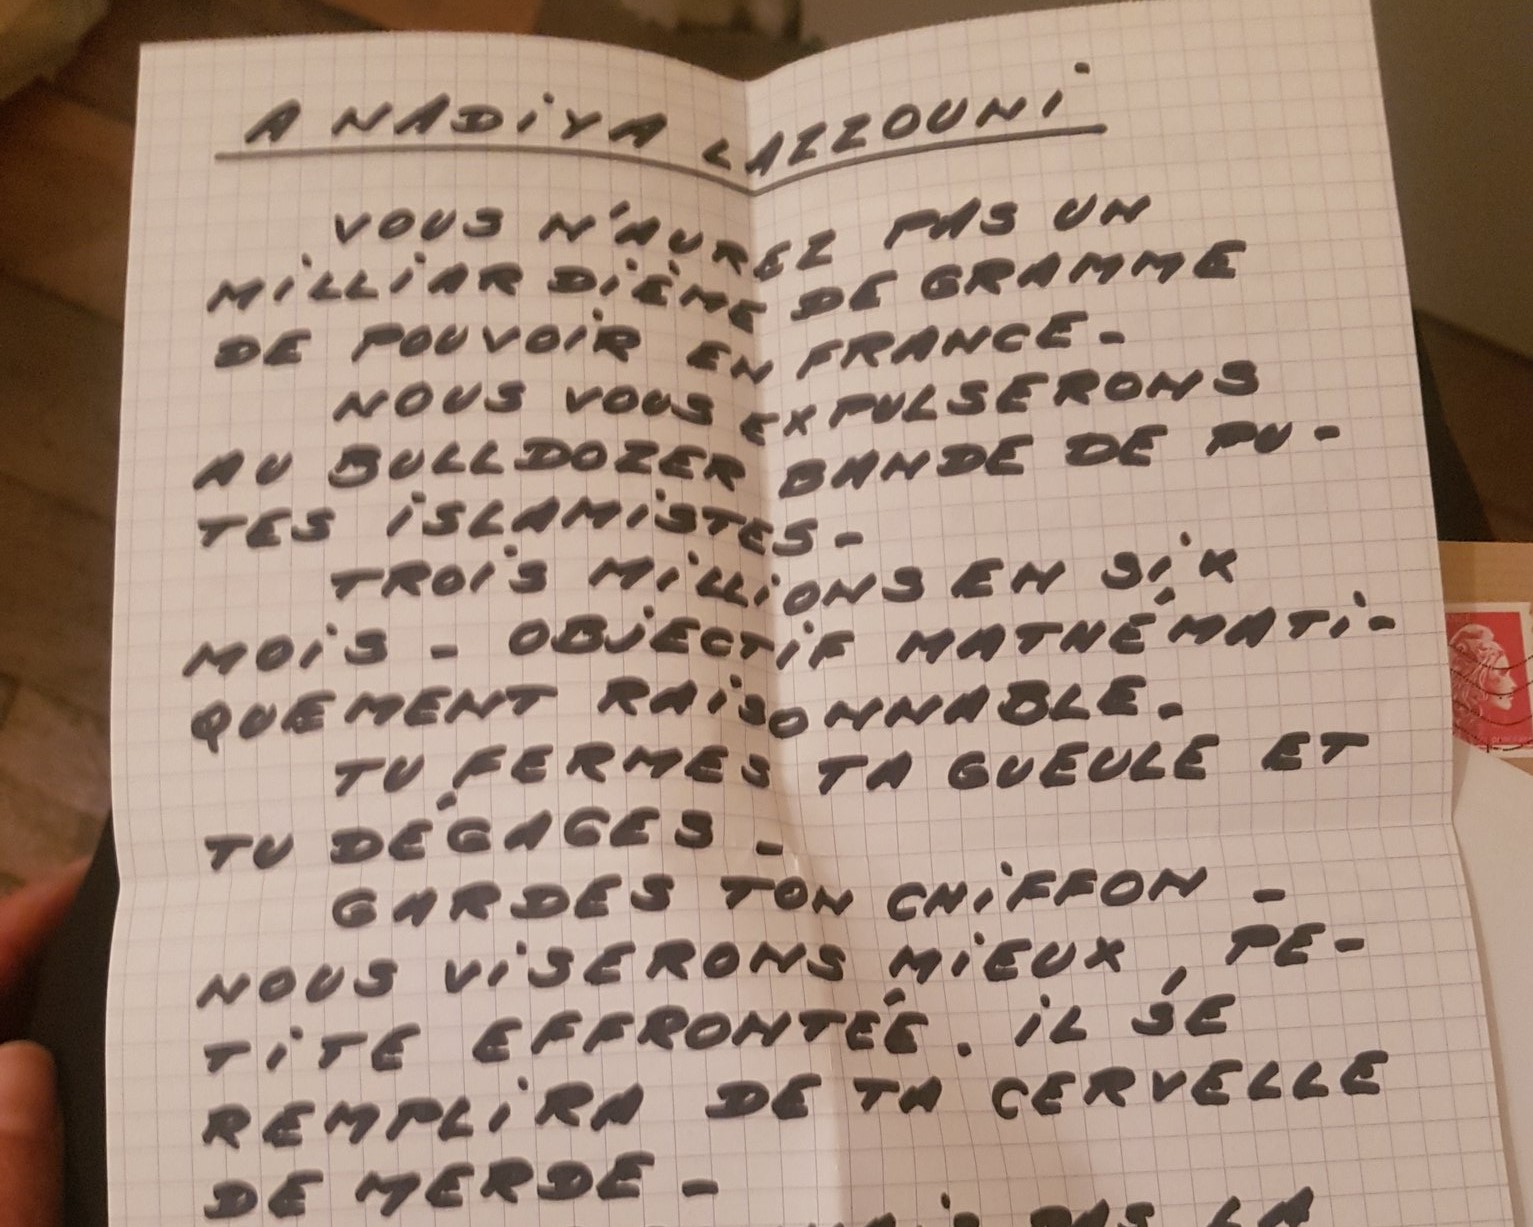 A NADiYA LAZZOUNi
VOUS N'AUREZ PAS UN
MiLLiARDiÈME DE GRAMME
DE POUVOiR EN FRANCE-
NOUS VOUS EXPULSERONS
AU BULLDOZER BANDE DE PU-
TES iSLAMiSTES-
TROiS MiLLiONS EN SiX
MOiS - OBJECTiF MATHÉMATi-
QUEMENT RAiSONNABLE-
TU FERMES TA GUEULE ET
TU DÉGAGES -
GARDES TON CHiFFON -
NOUS ViSERONS MiEUX, PE-
TiTE EFFRONTÉE. iL SE
REMPLiRA DE TA CERVELLE
DE MERDE -
PAS LA